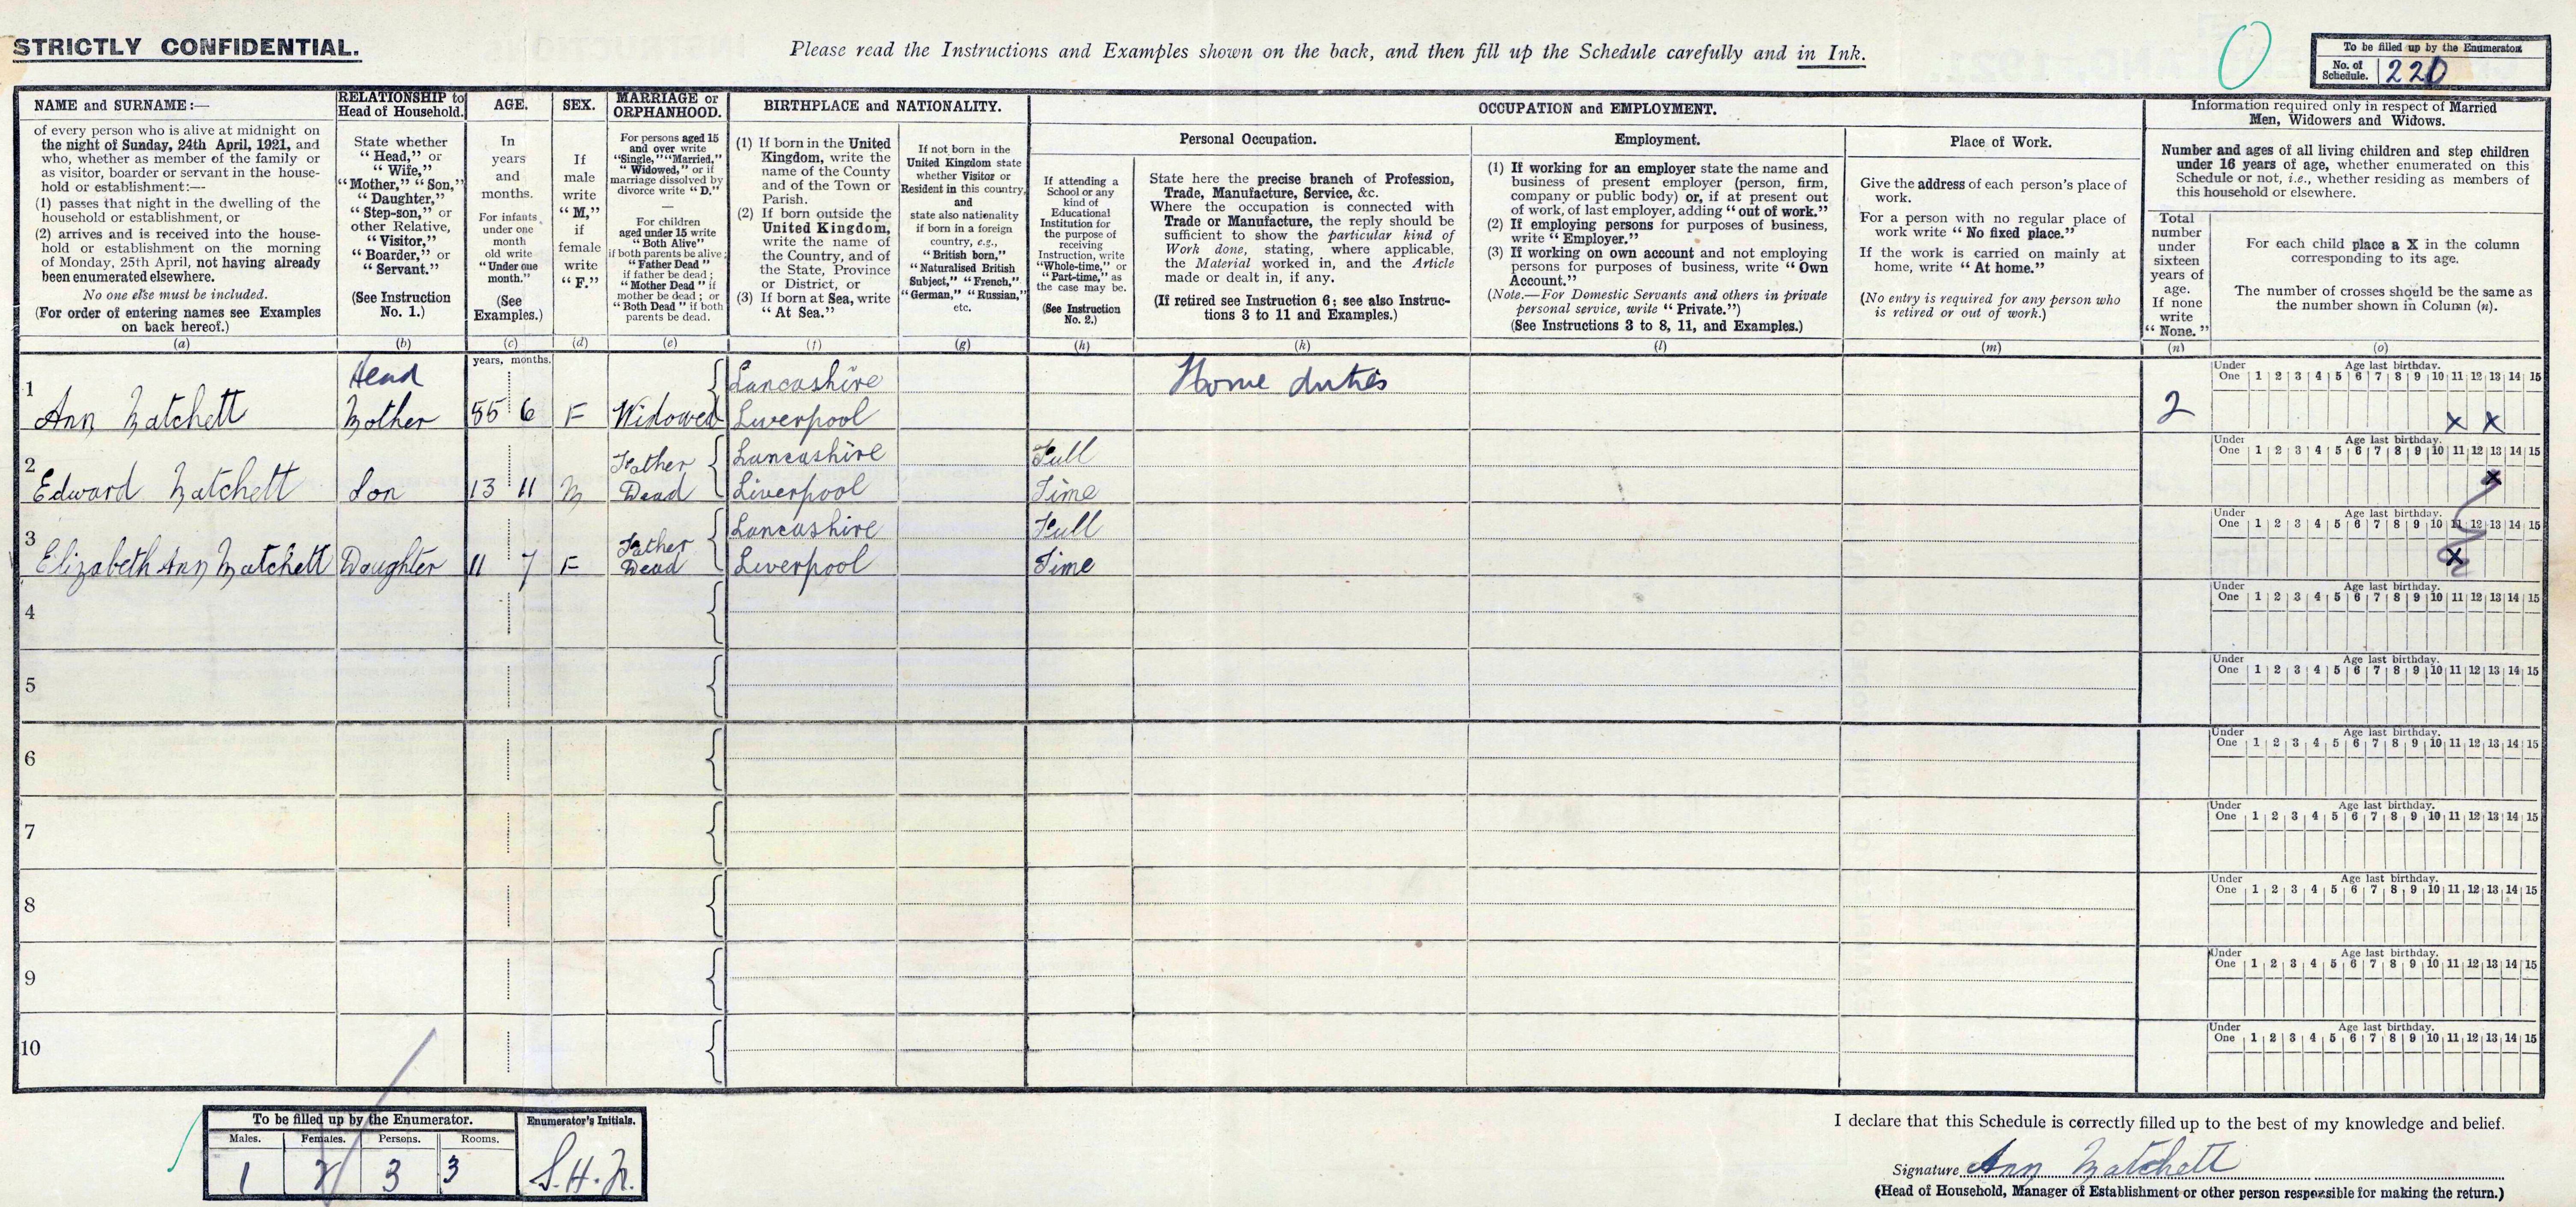 STRICTLY CONFIDENTIAL.
Please read the Instructions and Examples shown on the back, and then fill up the Schedule carefully and in Ink.
To be filled up by the Enumerator
No. of Schedule. 220
NAME and SURNAME:—
of every person who is alive at midnight on
the night of Sunday, 24th April, 1921, and
who, whether as member of the family or
as visitor, boarder or servant in the house-
hold or establishment:—
(1) passes that night in the dwelling of the
household or establishment, or
(2) arrives and is received into the house-
hold or establishment on the morning
of Monday, 25th April, not having already
been enumerated elsewhere.
No one else must be included.
(For order of entering names see Examples
on back hereof.)
(a)
RELATIONSHIP to
Head of Household.
State whether
"Head," or
"Wife,"
"Mother," "Son,"
"Daughter,"
"Step-son," or
other Relative,
"Visitor,"
"Boarder," or
"Servant."
(See Instruction
No. 1.)
(b)
AGE.
In
years
and
months.
For infants
under one
month
old write
"Under one
month."
(See
Examples.)
(c)
SEX.
If
male
write
"M,"
if
female
write
"F."
(d)
MARRIAGE or
ORPHANHOOD.
For persons aged 15
and over write
"Single," "Married,"
"Widowed," or if
marriage dissolved by
divorce write "D."
—
For children
aged under 15 write
"Both Alive"
if both parents be alive;
"Father Dead"
if father be dead;
"Mother Dead" if
mother be dead; or
"Both Dead" if both
parents be dead.
(e)
BIRTHPLACE and NATIONALITY.
(1) If born in the United
Kingdom, write the
name of the County
and of the Town or
Parish.
(2) If born outside the
United Kingdom,
write the name of
the Country, and of
the State, Province
or District, or
(3) If born at Sea, write
"At Sea."
(f)
If not born in the
United Kingdom state
whether Visitor or
Resident in this country,
and
state also nationality
if born in a foreign
country, e.g.,
"British born,"
"Naturalised British
Subject," "French,"
"German," "Russian,"
etc.
(g)
OCCUPATION and EMPLOYMENT.
Personal Occupation.
If attending a
School or any
kind of
Educational
Institution for
the purpose of
receiving
Instruction, write
"Whole-time," or
"Part-time," as
the case may be.
(See Instruction
No. 2.)
(h)
State here the precise branch of Profession,
Trade, Manufacture, Service, &c.
Where the occupation is connected with
Trade or Manufacture, the reply should be
sufficient to show the particular kind of
Work done, stating, where applicable,
the Material worked in, and the Article
made or dealt in, if any.
(If retired see Instruction 6; see also Instruc-
tions 3 to 11 and Examples.)
(k)
Employment.
(1) If working for an employer state the name and
business of present employer (person, firm,
company or public body) or, if at present out
of work, of last employer, adding "out of work."
(2) If employing persons for purposes of business,
write "Employer."
(3) If working on own account and not employing
persons for purposes of business, write "Own
Account."
(Note.—For Domestic Servants and others in private
personal service, write "Private.")
(See Instructions 3 to 8, 11, and Examples.)
(l)
Place of Work.
Give the address of each person's place of
work.
For a person with no regular place of
work write "No fixed place."
If the work is carried on mainly at
home, write "At home."
(No entry is required for any person who
is retired or out of work.)
(m)
Information required only in respect of Married
Men, Widowers and Widows.
Number and ages of all living children and step children
under 16 years of age, whether enumerated on this
Schedule or not, i.e., whether residing as members of
this household or elsewhere.
Total
number
under
sixteen
years of
age.
If none
write
"None."
(n)
For each child place a X in the column
corresponding to its age.
The number of crosses should be the same as
the number shown in Column (n).
(o)
years, months.
1 Ann Matchett Head Mother 55 6 F Widowed Lancashire Liverpool Home duties 2
Under One Age last birthday. 1 2 3 4 5 6 7 8 9 10 11 12 13 14 15
x x
2 Edward Matchett Son 13 11 M Father Dead Lancashire Liverpool Full Time
Under One Age last birthday. 1 2 3 4 5 6 7 8 9 10 11 12 13 14 15
x
3 Elizabeth Ann Matchett Daughter 11 7 F Father Dead Lancashire Liverpool Full Time
Under One Age last birthday. 1 2 3 4 5 6 7 8 9 10 11 12 13 14 15
x
4
Under One Age last birthday. 1 2 3 4 5 6 7 8 9 10 11 12 13 14 15
5
Under One Age last birthday. 1 2 3 4 5 6 7 8 9 10 11 12 13 14 15
6
Under One Age last birthday. 1 2 3 4 5 6 7 8 9 10 11 12 13 14 15
7
Under One Age last birthday. 1 2 3 4 5 6 7 8 9 10 11 12 13 14 15
8
Under One Age last birthday. 1 2 3 4 5 6 7 8 9 10 11 12 13 14 15
9
Under One Age last birthday. 1 2 3 4 5 6 7 8 9 10 11 12 13 14 15
10
Under One Age last birthday. 1 2 3 4 5 6 7 8 9 10 11 12 13 14 15
To be filled up by the Enumerator.
Males. Females. Persons. Rooms.
1 2 3 3
Enumerator's Initials.
S.H.Jr.
I declare that this Schedule is correctly filled up to the best of my knowledge and belief.
Signature Ann Matchett
(Head of Household, Manager of Establishment or other person responsible for making the return.)